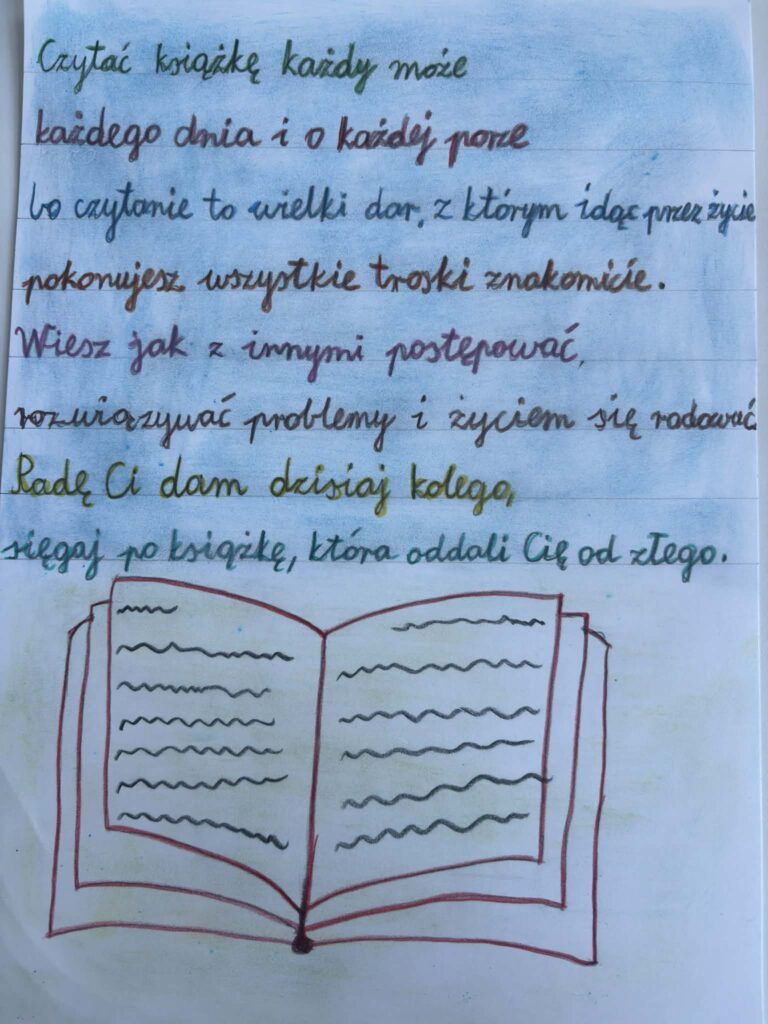 Czytać książkę każdy może
każdego dnia i o każdej porze
bo czytanie to wielki dar, z którym idąc przez życie
pokonujesz wszystkie troski znakomicie.
Wiesz jak z innymi postępować,
rozwiązywać problemy i życiem się radować.
Radę Ci dam dzisiaj kolego,
sięgaj po książkę, która oddali Cię od złego.